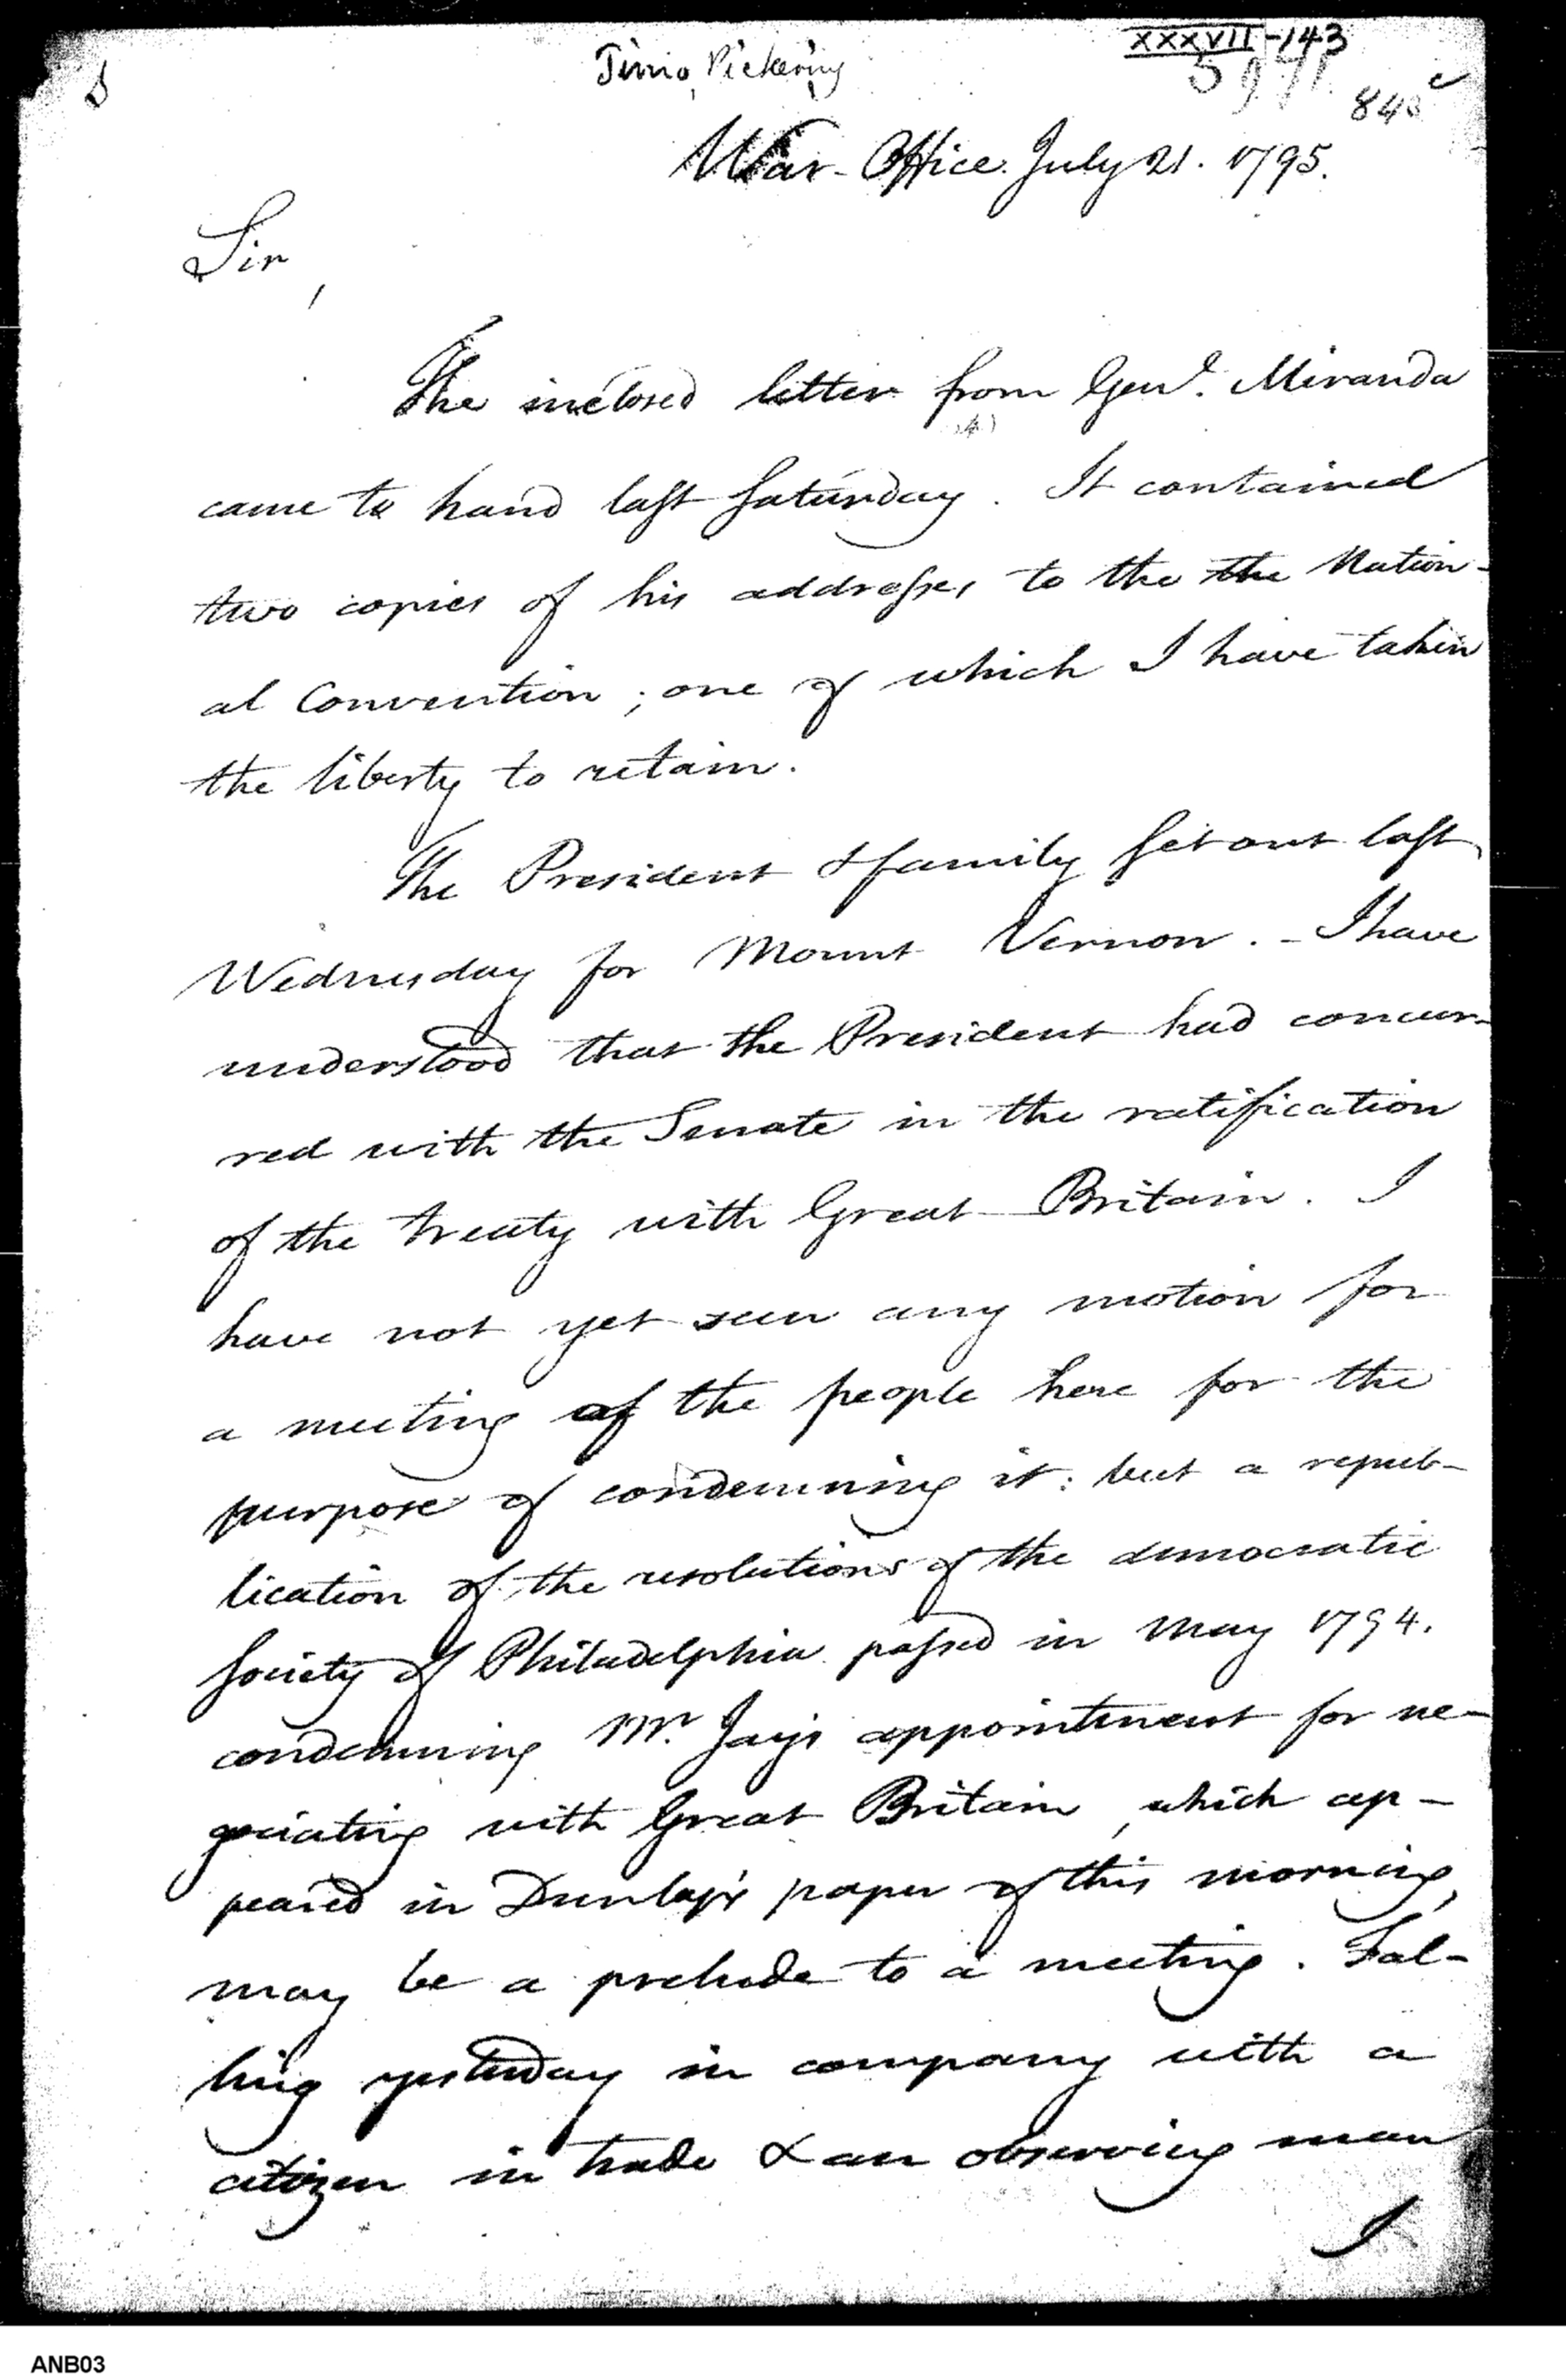 Timo. Pickering
XXXVII-143
War-Office July 21. 1795.
Sir,
The inclosed letter from Genl. Miranda
came to hand last Saturday. It contained
two copies of his addresses to the the Nation-
al Convention; one of which I have taken
the liberty to retain.
The President & family set out last
Wednesday for Mount Vernon. - I have
understood that the President had concur-
red with the Senate in the ratification
of the treaty with Great Britain. I
have not yet seen any motion for
a meeting of the people here for the
purpose of condemning it: but a repub-
lication of the resolutions of the democratic
society of Philadelphia passed in May 1794.
condemning Mr. Jay's appointment for ne-
gociating with Great Britain, which ap-
peared in Dunlap's paper of this morning,
may be a prelude to a meeting. Fal-
ling yesterday in company with a
citizen in trade & an observing man
I
ANB03